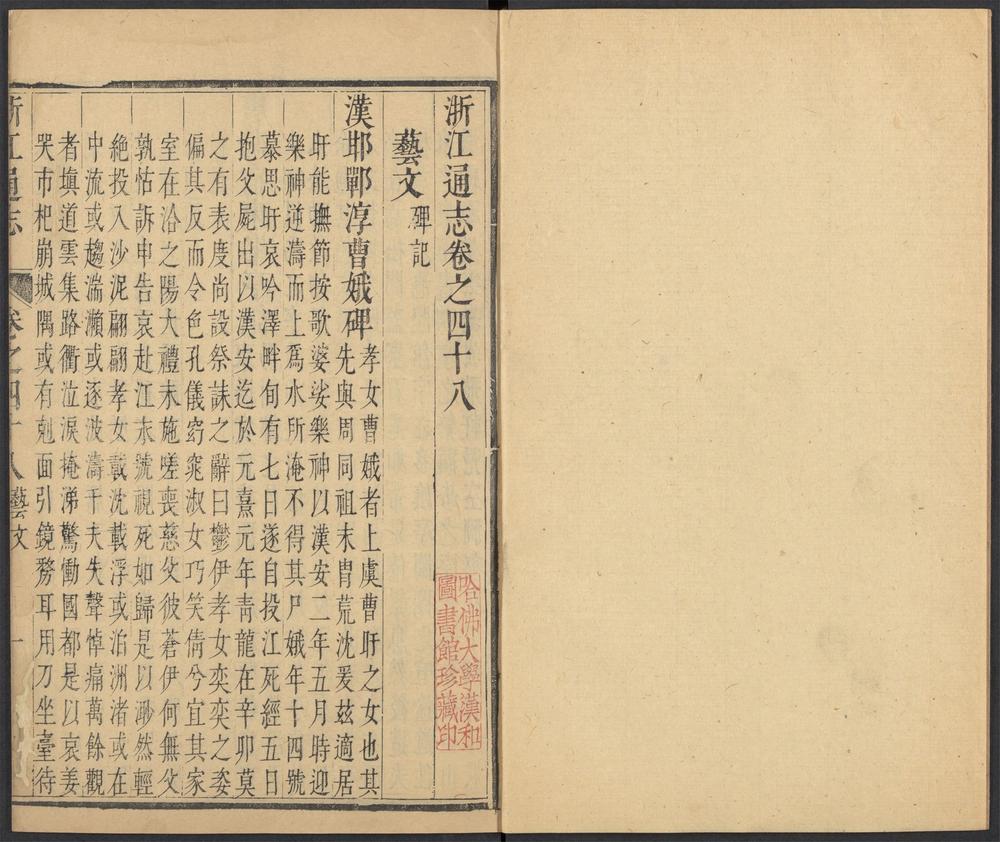 浙江通志卷之四十八
藝文
碑記
漢邯鄲淳曹娥碑
孝女曹娥者上虞曹盱之女也其
先與周同祖末胄荒沈爰玆適居
盱能撫節按歌婆娑樂神以漢安二年五月時迎
樂神逆濤而上爲水所淹不得其尸娥年十四號
慕思盱哀吟澤畔旬有七日遂自投江死經五日
抱父屍出以漢安迄於元熹元年青龍在辛卯莫
之有表度尚設祭誄之辭曰鬱伊孝女奕奕之姿
偏其反而令色孔儀窈窕淑女巧笑倩兮宜其家
室在洽之陽大禮未施嗟喪慈父彼蒼伊何無父
孰怙訴申告哀赴江永號視死如歸是以渺然輕
絶投入沙泥翩翩孝女載沈載浮或泊洲渚或在
中流或趨湍瀨或逐波濤千夫失聲悼痛萬餘觀
者塡道雲集路衢泣淚掩涕驚慟國都是以哀姜
哭市杞崩城隅或有剋面引鏡剺耳用刀坐臺待
浙江通志
卷之四十八藝文
一
哈佛大學漢和
圖書館珍藏印